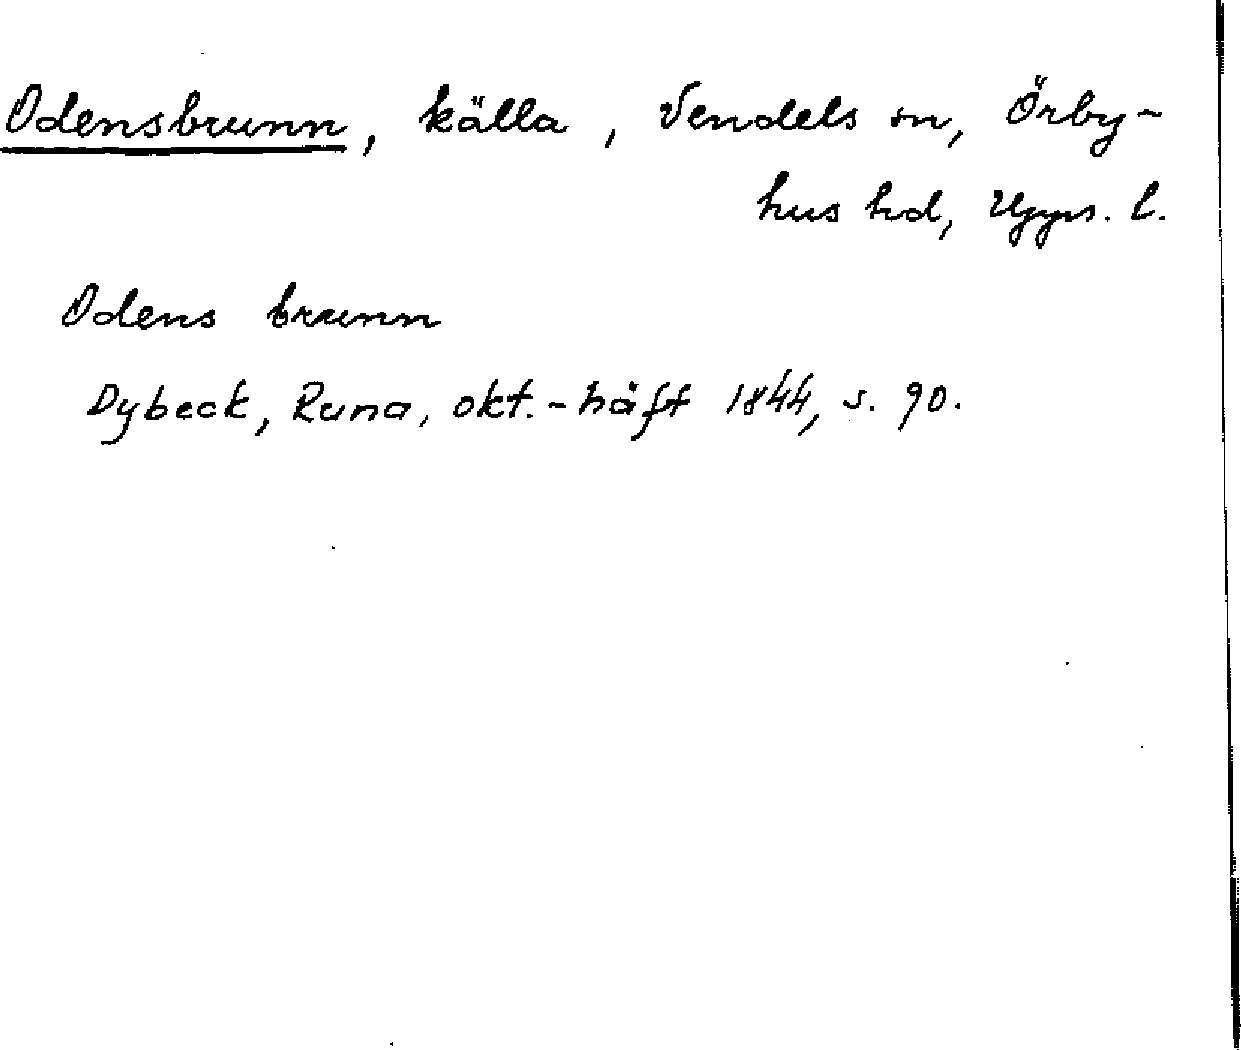 Odensbrunn, källa, Vendels sn, Örby-
hus hd, Upps. l.
Odens brunn
Dybeck, Runa, okt.-häft 1844, s. 90.